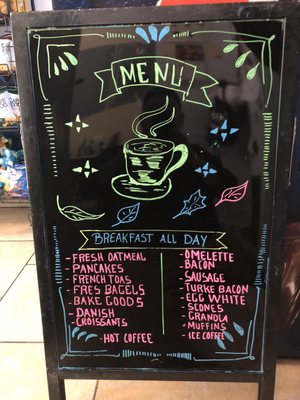 MENU
BREAKFAST ALL DAY
-FRESH OATMEAL
-PANCAKES
-FRENCH TOAS
-FRES BAGELS
-BAKE GOODS
-DANISH
-CROISSANTS
-HOT COFFEE
-OMELETTE
-BACON
-SAUSAGE
-TURKE BACON
-EGG WHITE
-SCONES
-GRANOLA
-MUFFINS
-ICE COFFEE